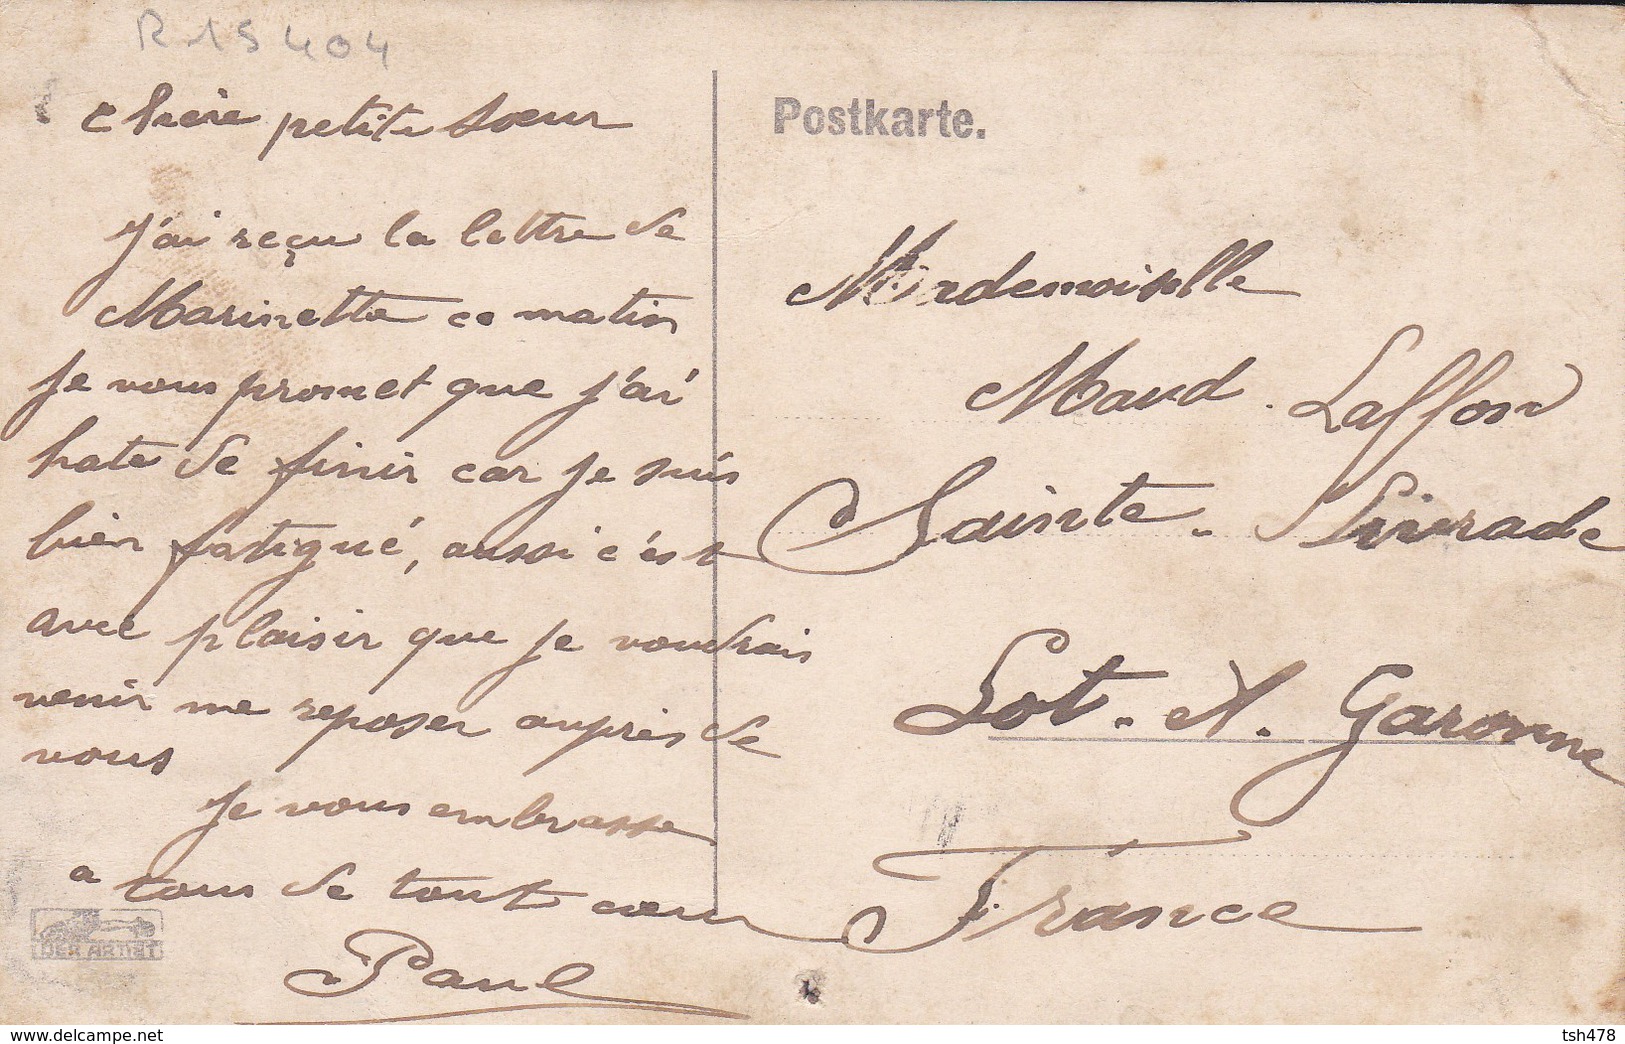 R 15 404
chère petite sœur
J'ai reçu la lettre de
Marinette ce matin
je vous promet que j'ai
hate de finir car je suis
bien fatigué, aussi c'est
avec plaisir que je voudrais
venir me reposer auprès de
vous
Je vous embrasse
a tous de tout cœur
Paul
DER ARTIST
Postkarte.
Mademoiselle
Maud. Laffon
Sainte-Livrade
Lot-et-Garonne
France
www.delcampe.net
tsh478